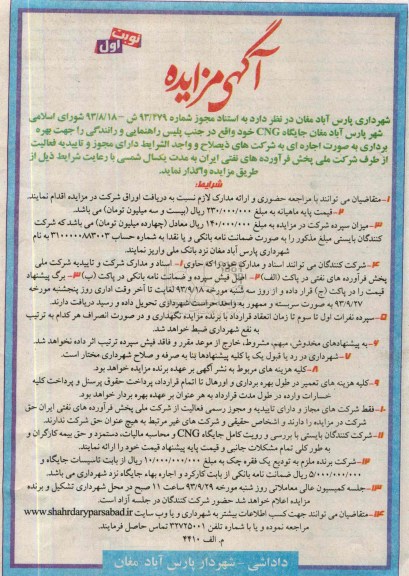 نوبت اول
آگهی مزایده
شهرداری پارس آباد مغان در نظر دارد به استناد مجوز شماره ۹۳/۲۷۹ ش – ۹۳/۸/۱۸ شورای اسلامی
شهر پارس آباد مغان جایگاه CNG خود واقع در جنب پلیس راهنمایی و رانندگی را جهت بهره
برداری به صورت اجاره ای به شرکت های ذیصلاح و واجد الشرایط دارای مجوز و تاییدیه فعالیت
از طرف شرکت ملی پخش فرآورده های نفتی ایران به مدت یکسال شمسی با رعایت شرایط ذیل از
طریق مزایده واگذار نماید.
شرایط:
۱- متقاضیان می توانند با مراجعه حضوری و ارائه مدارک لازم نسبت به دریافت اوراق شرکت در مزایده اقدام نمایند.
۲- قیمت پایه ماهیانه به مبلغ ۲۳۰/۰۰۰/۰۰۰ ریال (بیست و سه میلیون تومان) می باشد.
۳- میزان سپرده شرکت در مزایده به مبلغ ۱۴۰/۰۰۰/۰۰۰ ریال معادل (چهارده میلیون تومان) می باشد که شرکت
کنندگان بایستی مبلغ مذکور را به صورت ضمانت نامه بانکی و یا نقدا به شماره حساب ۳۱۰۰۰۰۰۸۸۳۰۰۳ به نام
شهرداری پارس آباد مغان نزد بانک ملی واریز نمایند.
۴- شرکت کنندگان می توانند اسناد و مدارک خود را که حاوی ۱- اسناد و مدارک شرکت و تاییدیه شرکت ملی
پخش فرآورده های نفتی در پاکت (الف) ۲- اصل فیش سپرده و ضمانت نامه بانکی در پاکت (ب) ۳- برگ پیشنهاد
قیمت را در پاکت (ج) قرار داده و از روز سه شنبه مورخه ۹۳/۹/۱۸ لغایت تا آخر وقت اداری روز پنجشنبه مورخه
۹۳/۹/۲۷ به صورت سربسته و ممهور به واحد حراست شهرداری تحویل داده و رسید دریافت دارند.
۵- سپرده نفرات اول تا سوم تا زمان انعقاد قرارداد با برنده مزایده نگهداری و در صورت انصراف هر کدام به ترتیب
به نفع شهرداری ضبط خواهد شد.
۶- به پیشنهادهای مخدوش، مبهم، مشروط، خارج از موعد مقرر و فاقد فیش سپرده ترتیب اثر داده نخواهد شد.
۷- شهرداری در رد یا قبول یک یا کلیه پیشنهادها بنا به صرفه و صلاح شهرداری مختار است.
۸- کلیه هزینه های مربوط به نشر آگهی بر عهده برنده مزایده خواهد بود.
۹- کلیه هزینه های تعمیر در طول بهره برداری و اورهال تا اتمام قرارداد، پرداخت حقوق پرسنل و پرداخت کلیه
خسارات وارده در طول مدت قرارداد به هر عنوان بر عهده بهره بردار خواهد بود.
۱۰- فقط شرکت های مجاز و دارای تاییدیه و مجوز رسمی فعالیت از شرکت ملی پخش فرآورده های نفتی ایران حق
شرکت در مزایده را دارند و اشخاص حقیقی و شرکت های غیر مرتبط به هیچ عنوان حق شرکت ندارند.
۱۱- شرکت کنندگان بایستی با بررسی و رویت کامل جایگاه CNG و محاسبه مالیات، دستمزد و حق بیمه کارگران و
به طور کلی تمام مشکلات جانبی و قیمت پایه پیشنهاد قیمت خود را ارائه نمایند.
۱۲- شرکت برنده ملزم به تودیع یک فقره چک به مبلغ ۱۰/۰۰۰/۰۰۰/۰۰۰ ریال از بابت تاسیسات جایگاه و
۵/۰۰۰/۰۰۰/۰۰۰ ریال ضمانت نامه بانکی از بابت کارکرد و اجاره بهاء جایگاه نزد شهرداری می باشد.
۱۳- جلسه کمیسیون عالی معاملاتی روز شنبه مورخه ۹۳/۹/۲۹ ساعت ۱۱ صبح در محل شهرداری تشکیل و برنده
مزایده اعلام خواهد شد حضور شرکت کنندگان در جلسه آزاد است.
۱۴- متقاضیان می توانند جهت کسب اطلاعات بیشتر به شهرداری و یا وب سایت www.shahrdaryparsabad.ir
مراجعه نموده و یا با شماره تلفن ۳۲۷۲۵۰۰۱ تماس حاصل فرمایند.
م. الف ۴۴۱۰
داداشی - شهردار پارس آباد مغان